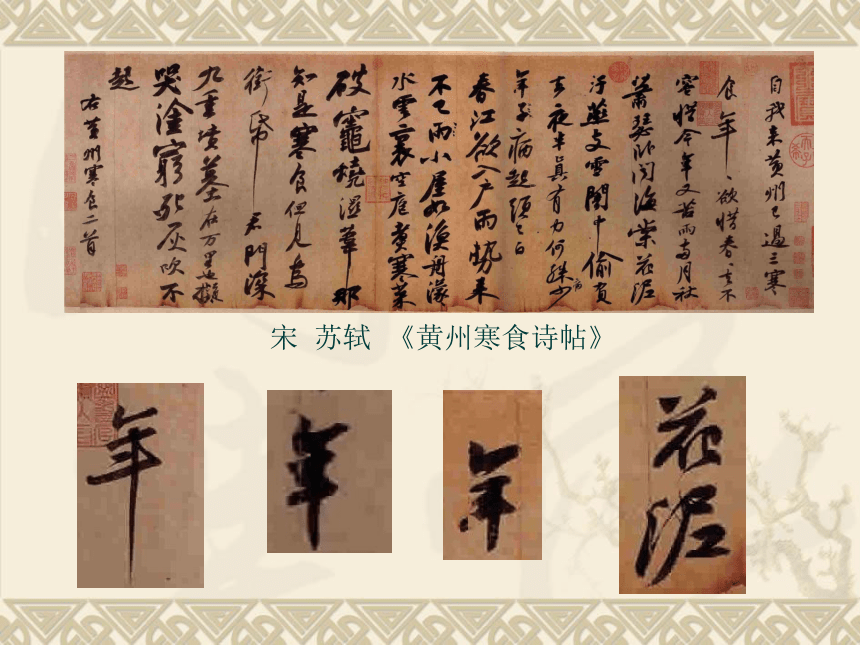 自我来黄州已過三寒
食年〻欲惜春〻去不
容惜今年又苦雨两月秋
蕭瑟卧闻海棠花泥
汙燕支雪闇中偷負
去夜半真有力何殊病少
年子病起頭已白
春江欲入户雨势来
不已雨小屋如漁舟濛〻
水雲裏空庖煮寒菜
破竈燒濕葦那
知是寒食但见烏
銜帋君门深
九重墳墓在万里也擬
哭塗窮死灰吹不
起
右黄州寒食二首
宋 苏轼 《黄州寒食诗帖》
年
年
年
花泥